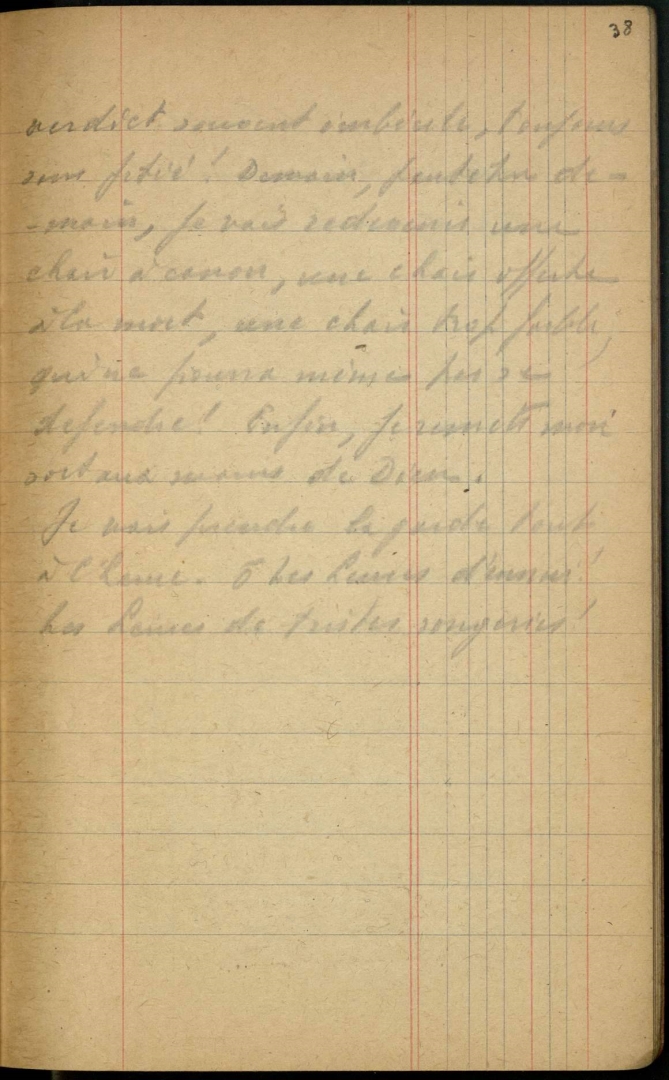 38
verdict souvent imbécile, toujours
sans pitié ! Demain, peut être de-
-main, je vais redevenir une
chair à canon, une chair offerte
à la mort, une chair trop faible,
qui ne pourra même pas se
defendre ! Enfin, je remets mon
sort aux mains de Dieu.
Je vais prendre la garde tout
à l'heure. O les heures d'ennui !
Les heures de tristes songeries !